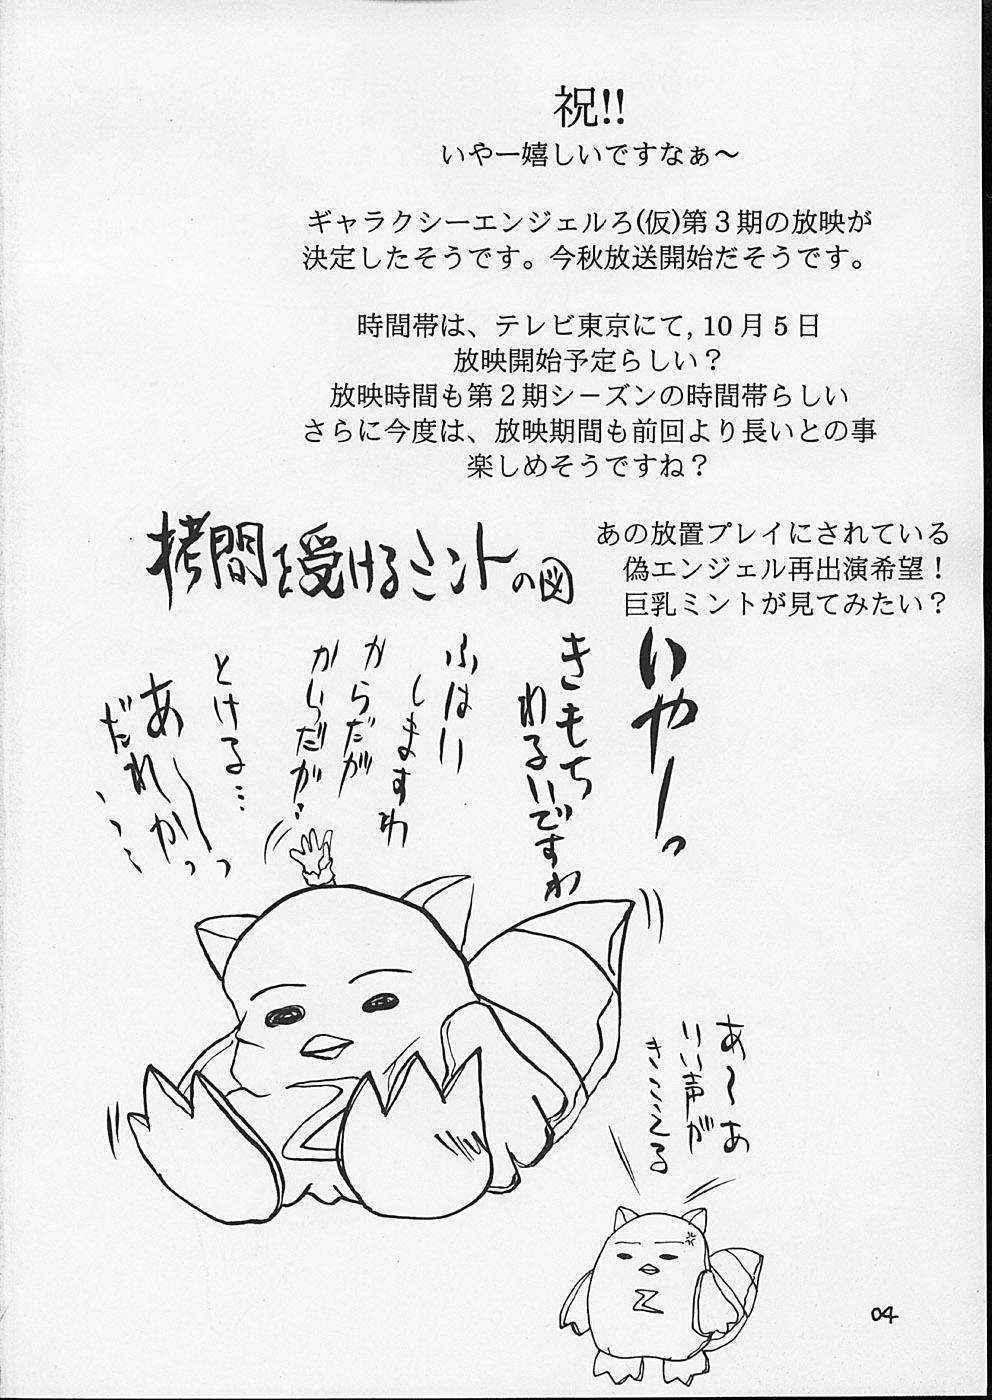 祝!!
いやー嬉しいですなぁ～
ギャラクシーエンジェルろ(仮)第３期の放映が
決定したそうです。今秋放送開始だそうです。
時間帯は、テレビ東京にて, 10月５日
放映開始予定らしい？
放映時間も第２期シーズンの時間帯らしい
さらに今度は、放映期間も前回より長いとの事
楽しめそうですね？
あの放置プレイにされている
偽エンジェル再出演希望！
巨乳ミントが見てみたい？
拷問を受けるミントの図
いやーっ
きもち
わるいですわ
ふはり
しますわ
からだが
からだが…
とける…
あ～～っ
だれかっ
、、、…
あ～あ
いい声が
きこえる
Z
Z
04